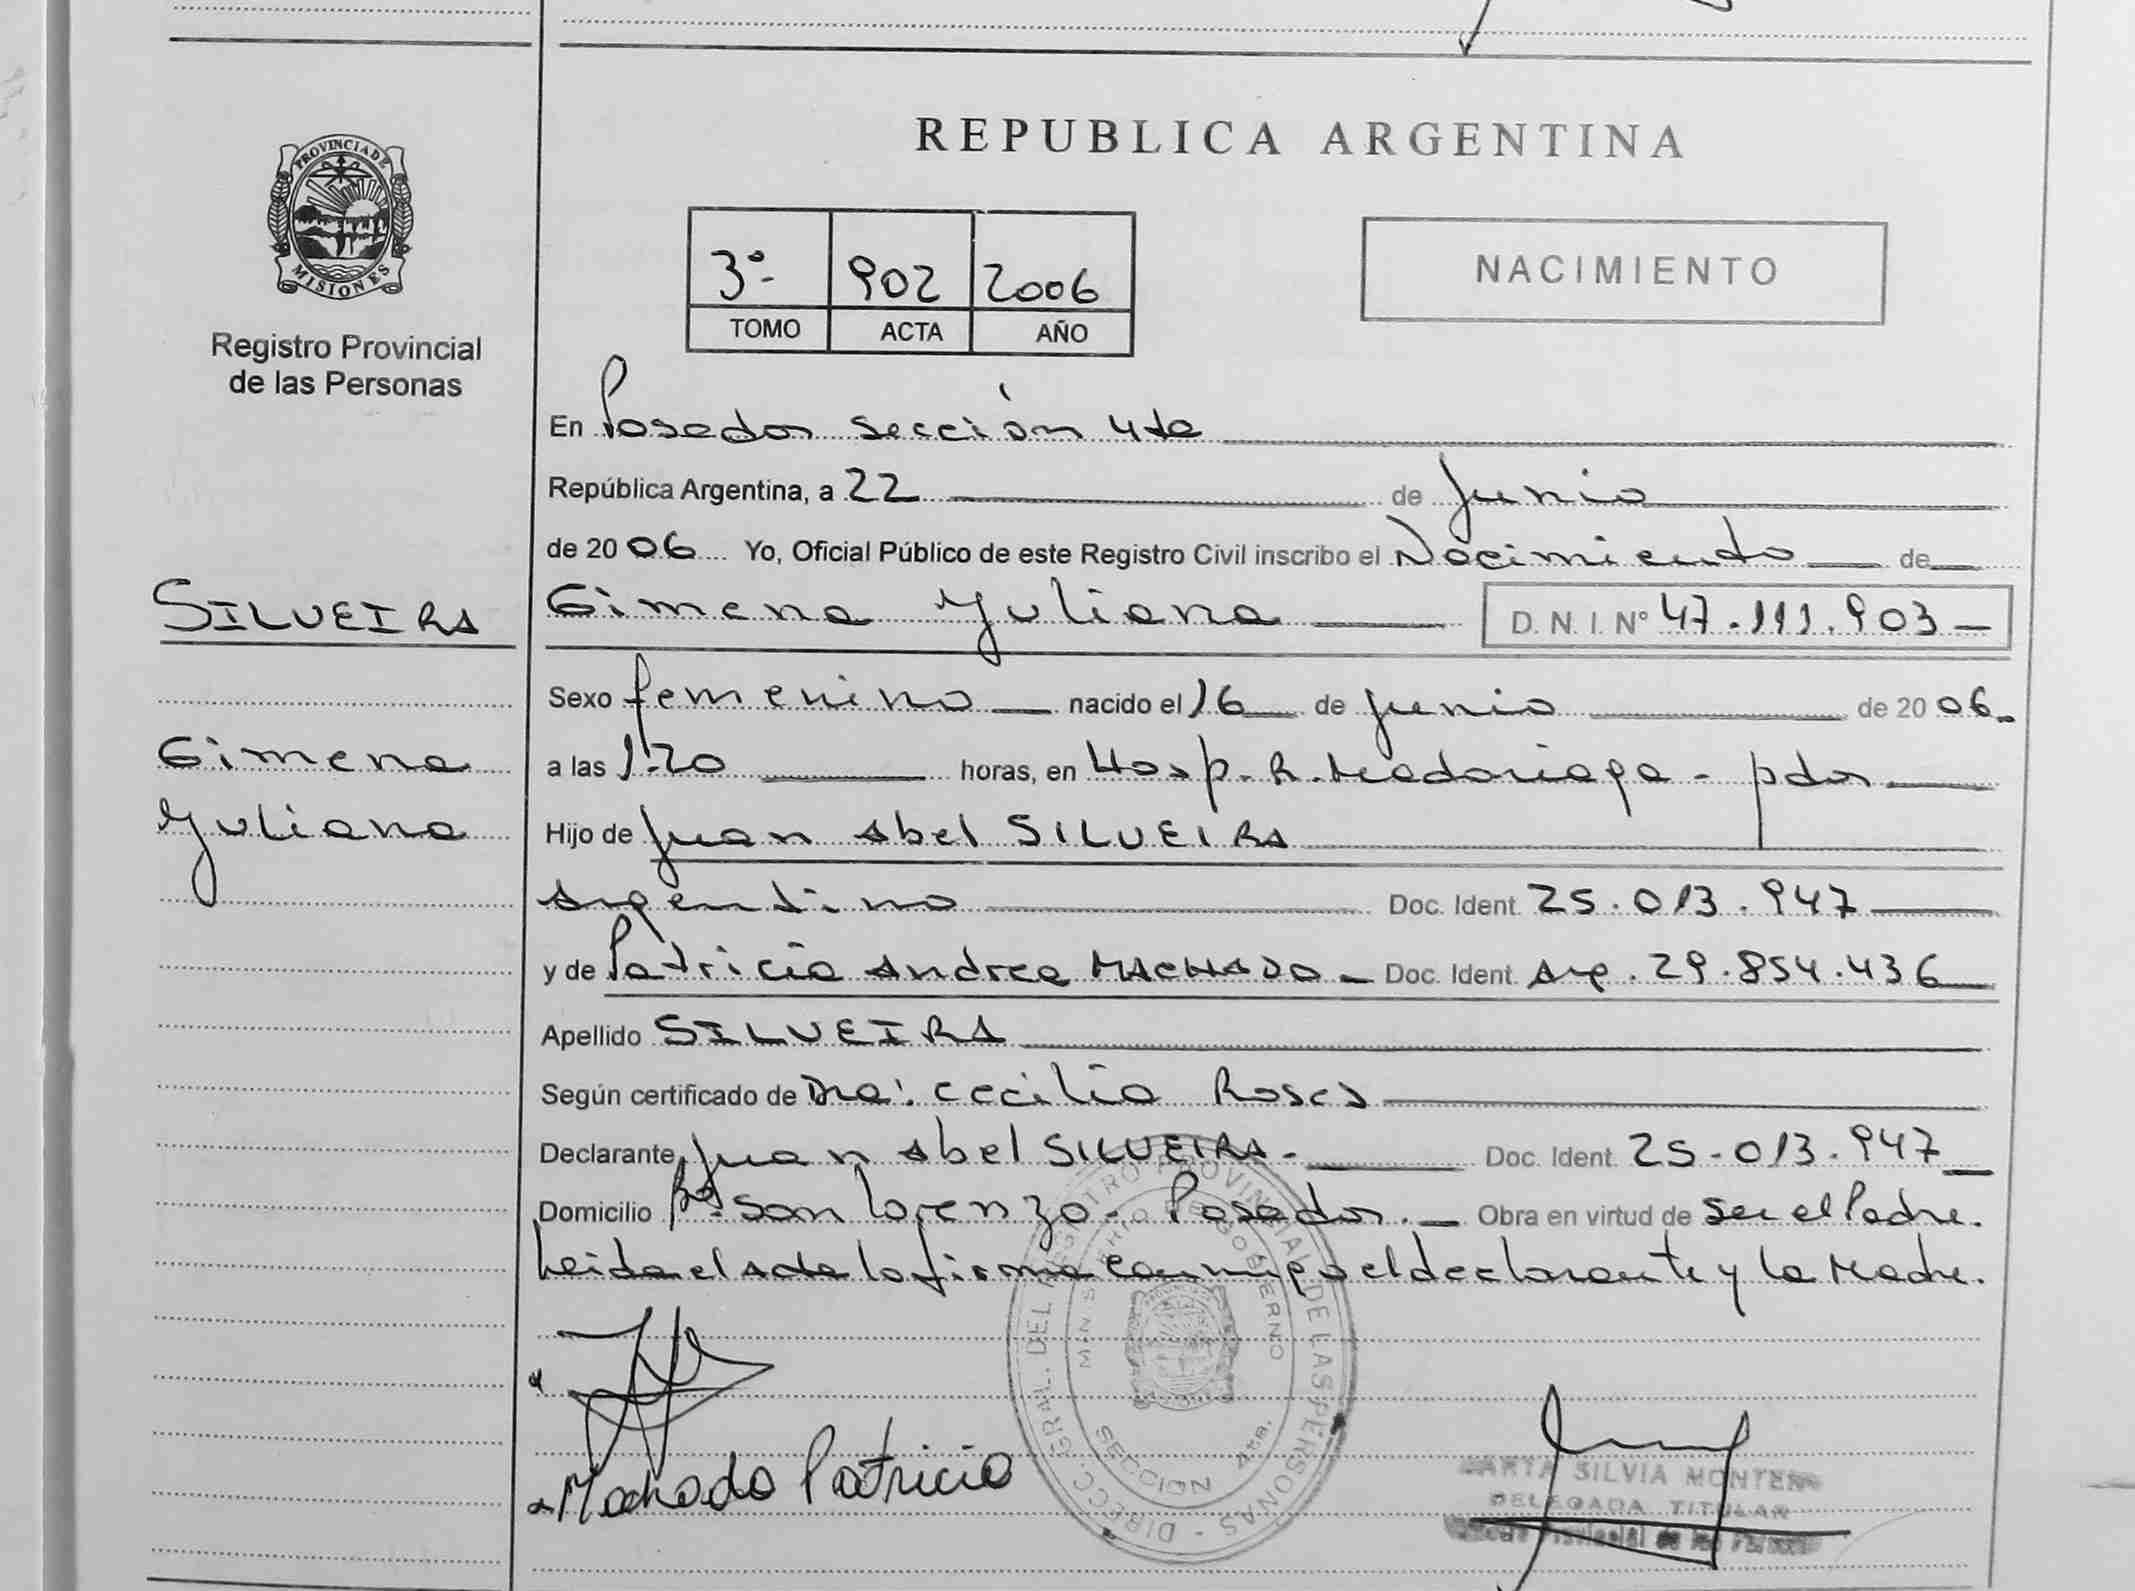 REPUBLICA ARGENTINA
PROVINCIA DE
MISIONES
Registro Provincial
de las Personas
3º- 902 2006
TOMO ACTA AÑO
NACIMIENTO
En Posadas sección 4ta
República Argentina, a 22 de Junio
de 2006 Yo, Oficial Público de este Registro Civil inscribo el Nacimiento de
SILVEIRA
Gimena Yuliana D. N. I. Nº 47.111.903
Sexo femenino nacido el 16 de junio de 2006
Gimena
Yuliana
a las 1:20 horas, en Hosp. R. Madariaga - pdas
Hijo de Juan Abel SILVEIRA
Argentino Doc. Ident. 25.013.947
y de Patricia Andrea MACHADO Doc. Ident. Arg. 29.854.436
Apellido SILVEIRA
Según certificado de Dra: Cecilia Roses
Declarante Juan Abel SILVEIRA.- Doc. Ident. 25.013.947
Domicilio Bº. San Lorenzo - Posadas. Obra en virtud de ser el Padre.
Leida el acta la firma conmigo el declarante y la Madre.
DIRECC. GRAL. DEL REGISTRO PROVINCIAL DE LAS PERSONAS -
MINISTERIO DE GOBIERNO
SECCION 4ta.
Machado Patricia
SILVIA MONTERO
DELEGADA TITULAR